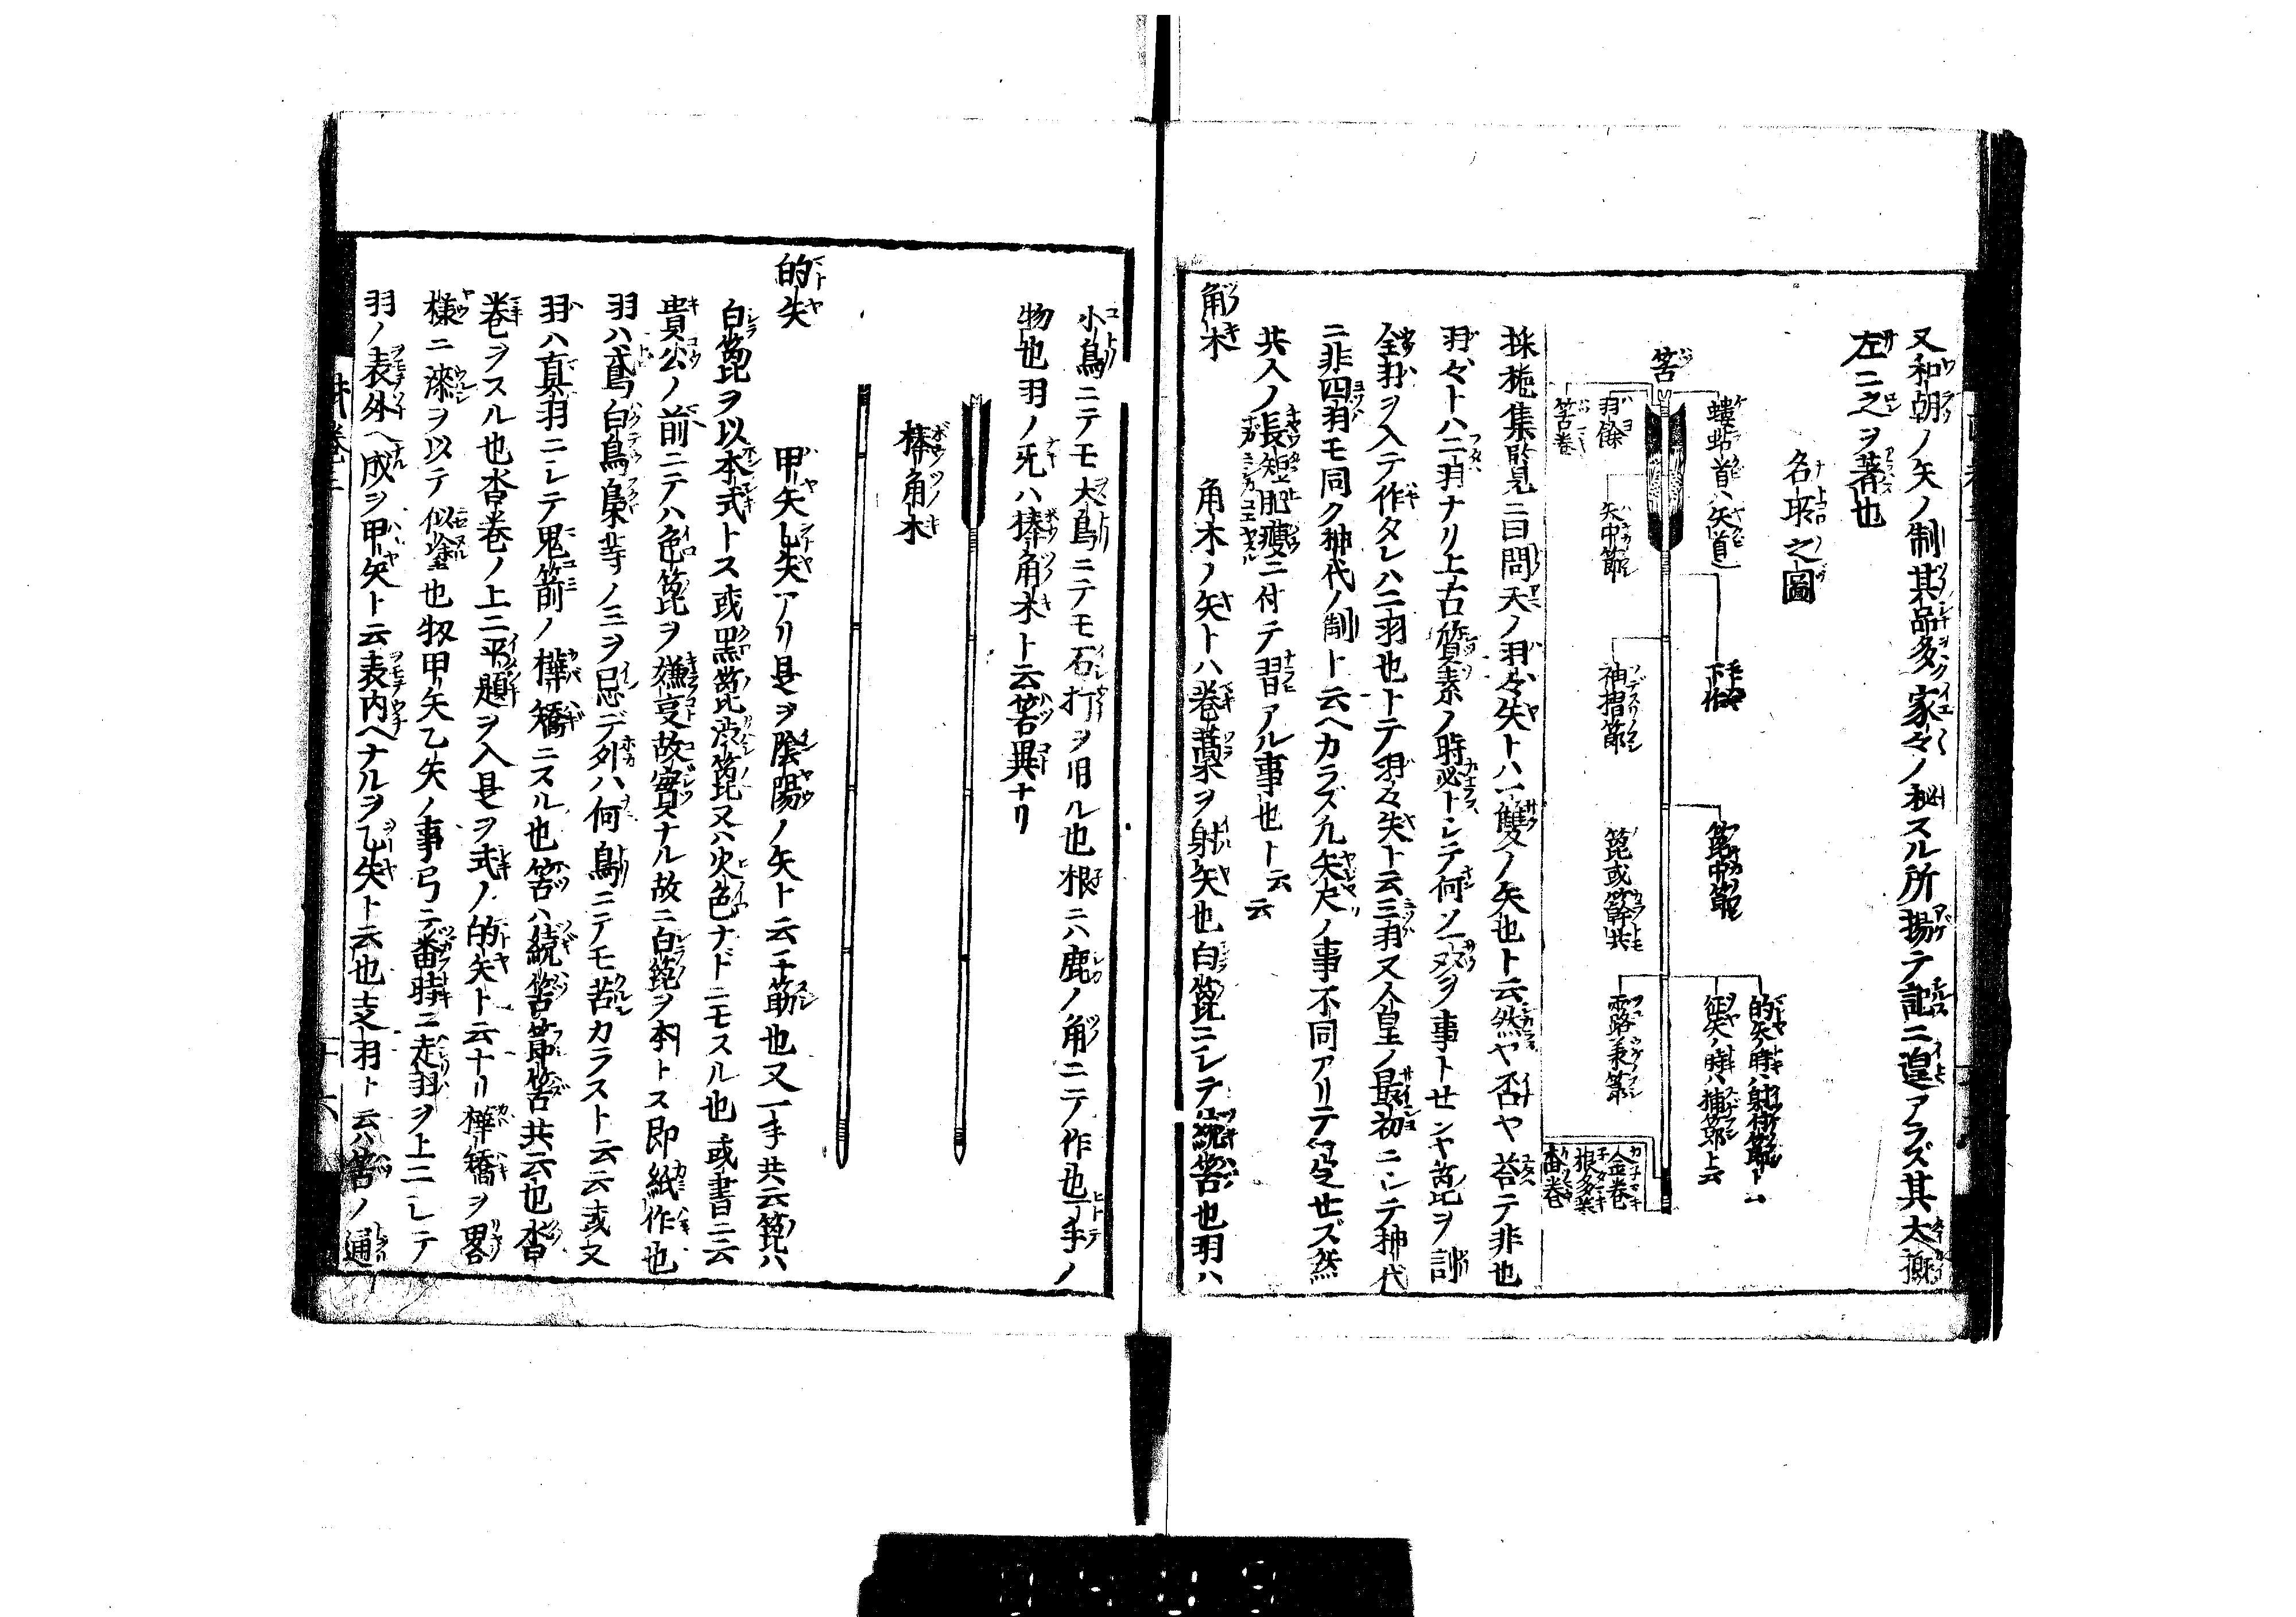 又和朝ノ矢ノ制其品多家々ノ秘スル所揚テ記ニ遑アラズ其大概
左ニ之ヲ著也
名所之圖
筈
螻蛄首ハ矢首
羽餘
筈巻
矢中節
袖摺節
箆中節
箆或簳共
的矢ノ時ハ射付節ト云
征矢ノ時ハ捕節ト云
採椸集覧ニ曰問天ノ羽々矢トハ一雙ノ矢也ト云然ヤ否ヤ荅テ非也
羽々トハ二羽ナリ上古質素ノ時必トシテ何ソ一双ヲ事トセンヤ箆ヲ
全羽ヲ入テ作タレハ二羽也トテ羽々矢ト云三羽又人皇ノ最初ニシテ神代
ニ非四羽モ同ク神代ノ制ト云ヘカラズ凡矢尺ノ事不同アリテ世ズ然
共人ノ長短肥瘦ニ付テ習アル事也ト云云
角木
角木ノ矢トハ巻藁ヲ射矢也白箆ニシテ続筈也羽ハ
小鳥ニテモ大鳥ニテモ石打ヲ用ル也根ニハ鹿ノ角ニテ作也一手ノ
物也羽ノ旡ハ棒角木ト云筈異ナリ
棒角木
的矢
甲矢乙矢アリ是ヲ陰陽ノ矢ト云二筋也又一手共云箆ハ
白箆ヲ以本式トス或黒箆渋箆又ハ火色ナドニモスル也或書ニ云
貴公ノ前ニテハ色箆ヲ嫌叓故實ナル故ニ白箆ヲ本トス即紙作也
羽ハ鳶白鳥梟等ノ三ヲ忌デ外ハ何鳥ニテモ苦カラスト云云或又
羽ハ真羽ニシテ鬼箭ノ樺矯ニスル也筈ハ続筈節筈共云也沓
巻ヲスル也沓巻ノ上ニ平題ヲ入是ヲ式ノ的矢ト云ナリ樺矯ヲ畧
様ニ漆ヲ以テ似塗也扨甲矢乙矢ノ事弓ニ番時ニ走羽ヲ上ニシテ
羽ノ表外ヘ成ヲ甲矢ト云表内ヘナルヲ乙矢ト云也支羽ト云ハ筈ノ通